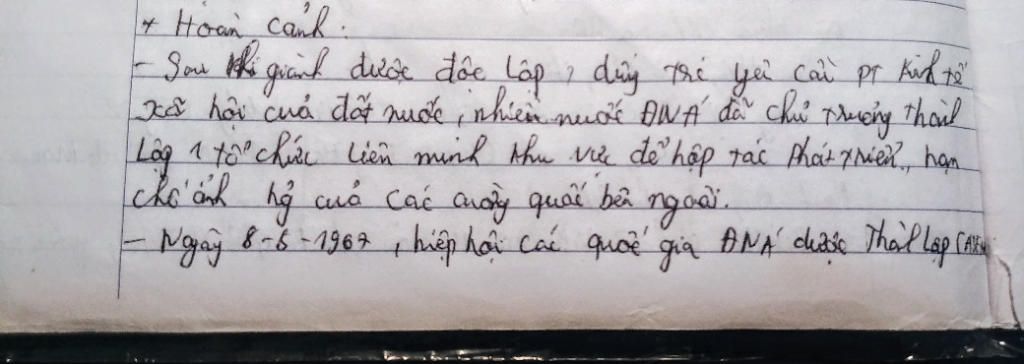 + Hoàn cảnh:
- Sau khi giành được độc lập, đứng trc yêu cầu pt kinh tế
xã hội của đất nước, nhiều nước ĐNÁ đã chủ trương thành
lập 1 tổ chức liên minh khu vực để hợp tác phát triển, hạn
chế ảnh hg̉ của các cường quốc bên ngoài.
- Ngày 8-8-1967, hiệp hội các quốc gia ĐNÁ được thành lập